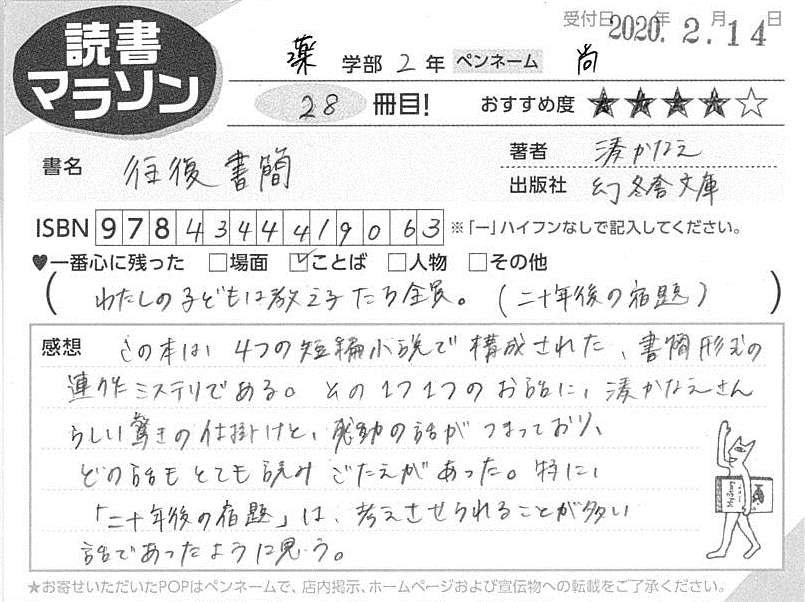 受付日 2020.年 2.月 14日
読書
マラソン
薬 学部 2 年 ペンネーム 尚
28 冊目! おすすめ度 ★★★★☆
書名 往復書簡
著者 湊かなえ
出版社 幻冬舎文庫
ISBN 9784344419063 ※「ー」ハイフンなしで記入してください。
♥一番心に残った □場面 ☑ことば □人物 □その他
(わたしの子どもは教え子たち全員。(二十年後の宿題))
感想 この本は、4つの短編小説で構成された、書簡形式の
連作ミステリである。その1つ1つのお話に、湊かなえさん
らしい驚きの仕掛けと、感動の話がつまっており、
どの話もとても読みごたえがあった。特に、
「二十年後の宿題」は、考えさせられることが多い
話であったように思う。
★お寄せいただいたPOPはペンネームで、店内掲示、ホームページおよび宣伝物への転載をご了承ください。